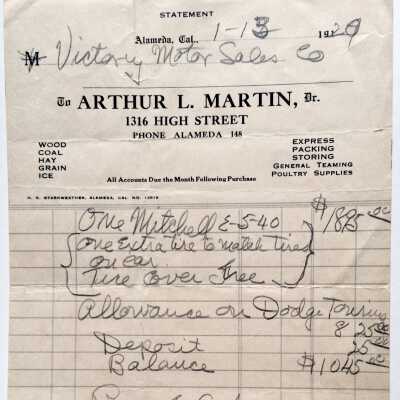 STATEMENT
Alameda, Cal., 1-13 1920
M Victory Motor Sales Co
To ARTHUR L. MARTIN, Dr.
1316 HIGH STREET
PHONE ALAMEDA 148
WOOD
COAL
HAY
GRAIN
ICE
EXPRESS
PACKING
STORING
GENERAL TEAMING
POULTRY SUPPLIES
All Accounts Due the Month Following Purchase
N. R. STARKWEATHER, ALAMEDA, CAL. NO. 13819
One Mitchell E-5-40 $1895.00
One Extra tire to match tires
on car
Tire Cover Free
Allowance on Dodge Touring
825.00
Deposit 25.00
Balance $1045.00